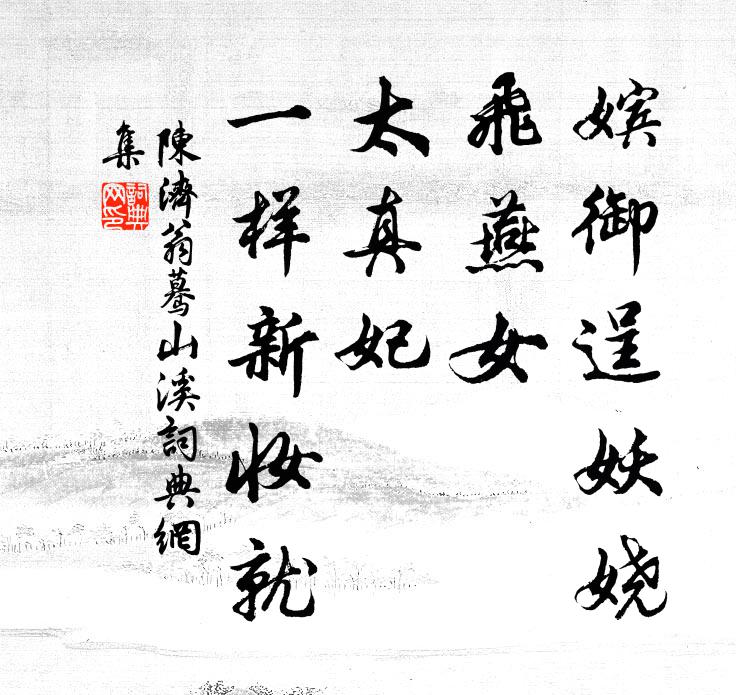 嫔御逞妖娆
飛燕女
太真妃
一样新妆就
陳濟翁蓦山溪詞典網
集
詞典网印